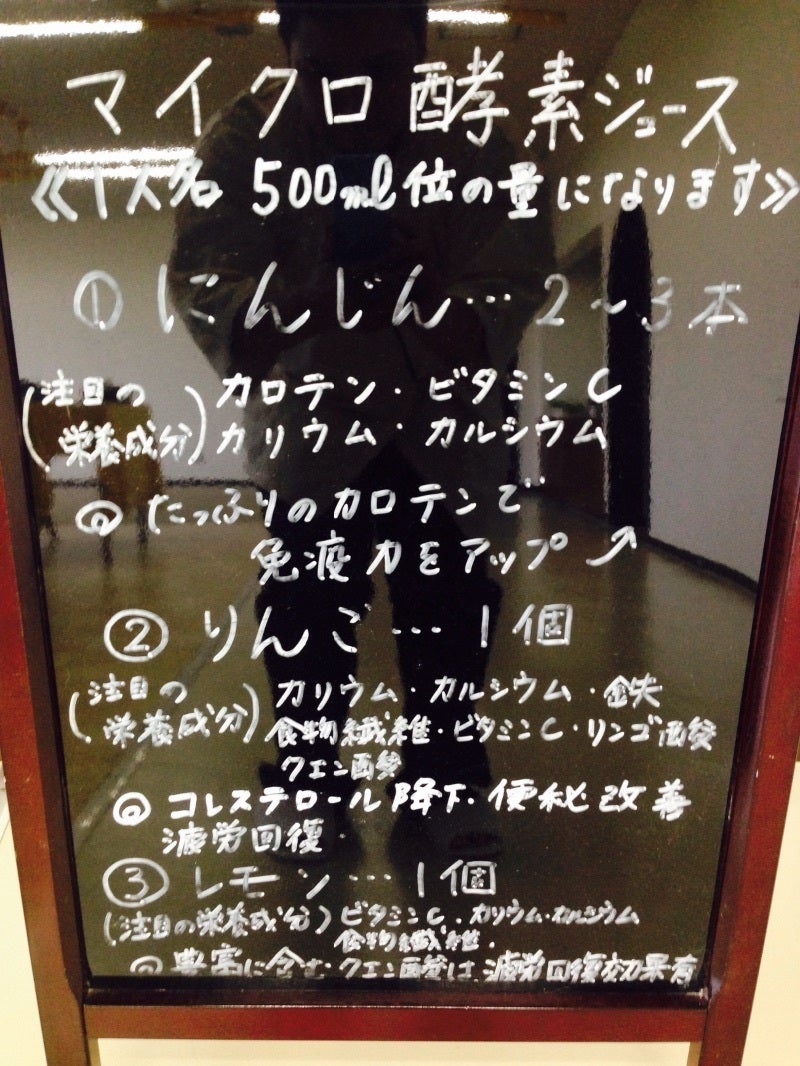 マイクロ酵素ジュース
≪1人分 500ml位の量になります≫
① にんじん…2〜3本
(注目の栄養成分) カロテン・ビタミンC
カリウム・カルシウム
◎ たっぷりのカロテンで
免疫力をアップ↗
② りんご…1個
(注目の栄養成分) カリウム・カルシウム・鉄
食物繊維・ビタミンC・リンゴ酸
クエン酸
◎ コレステロール降下・便秘改善
疲労回復・
③ レモン…1個
(注目の栄養成分) ビタミンC・カリウム・カルシウム
食物繊維・
◎ 豊富に含むクエン酸は、疲労回復効果有